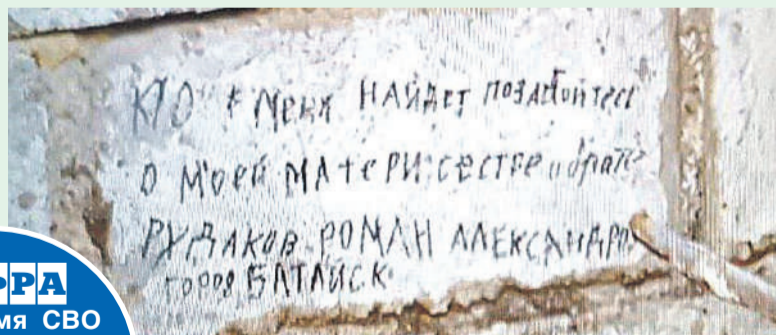 КТО меня НАЙДЕТ ПОЗАБОЙТЕСЬ
О МОЕЙ МАТЕРИ СЕСТРЕ и брате
РУДАКОВ РОМАН АЛЕКСАНДРО
город БАТАЙСК
ФРА
мя СВО